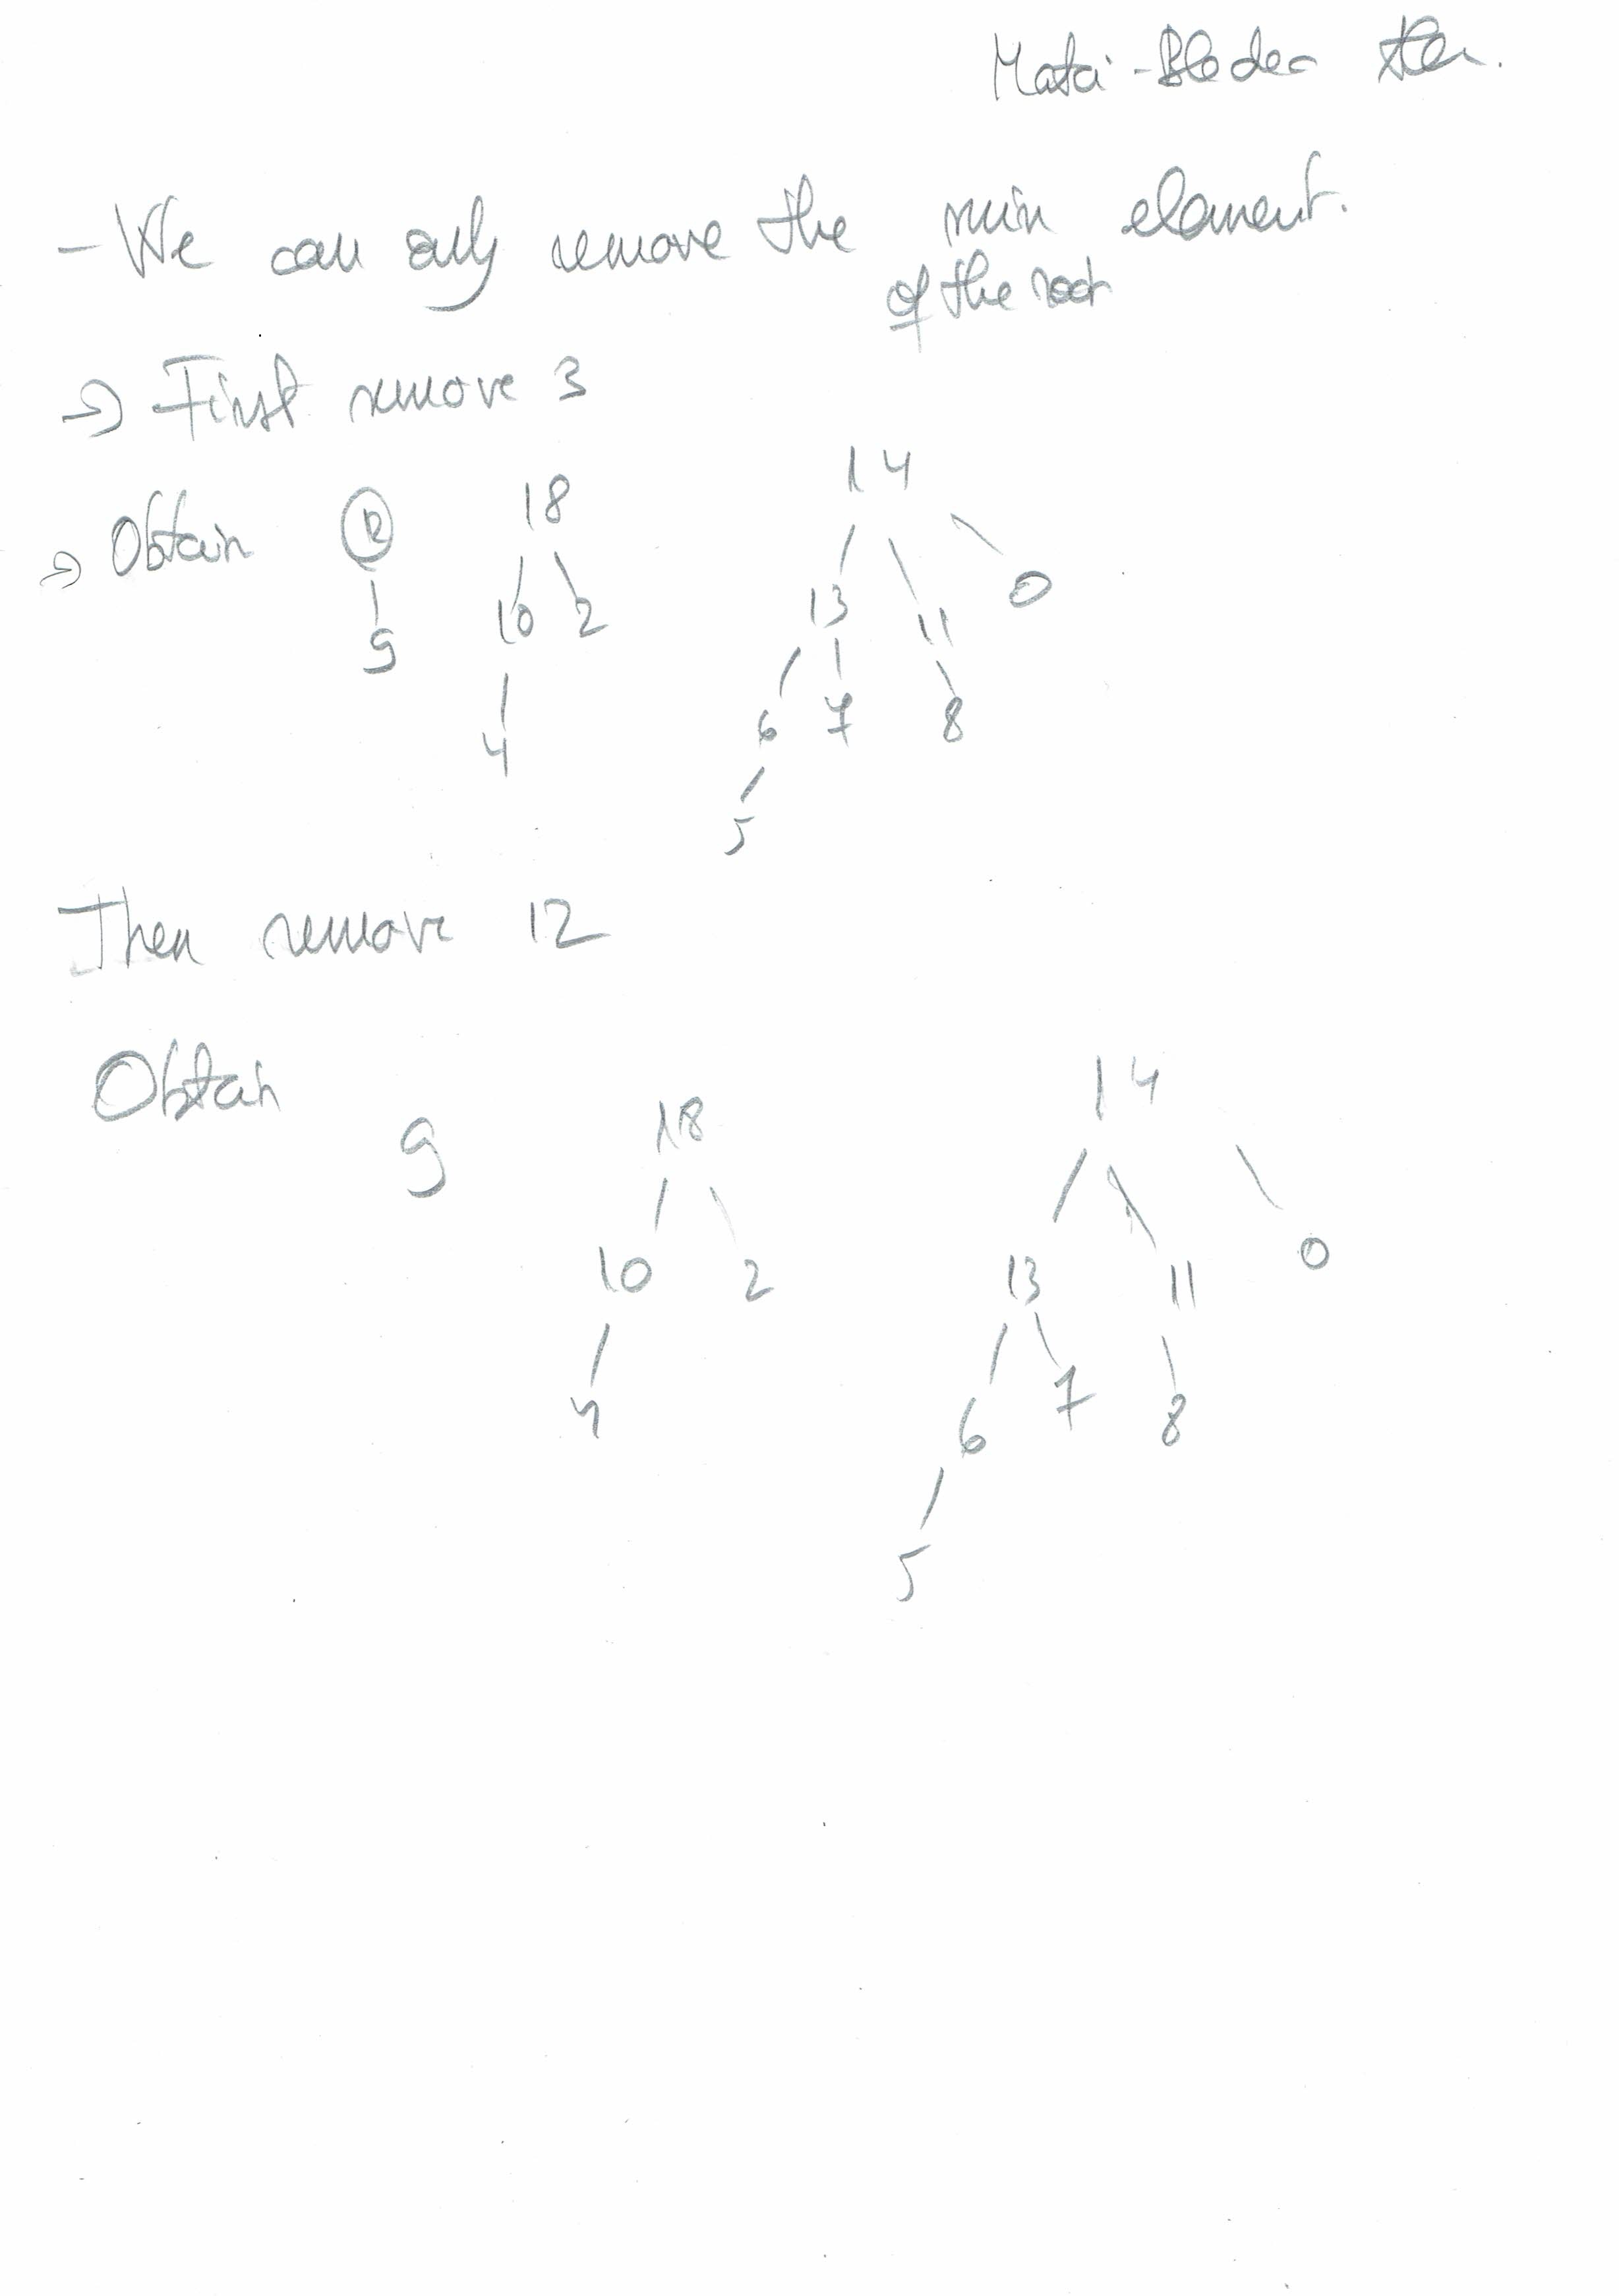 - We can only remove the min element.
of the root
→ First remove 3
→ Obtain 12 18 14
9 10 2 13 11 0
4 6 7 8
5
Then remove 12
Obtain
9 18 14
10 2 13 11 0
4 6 7 8
5